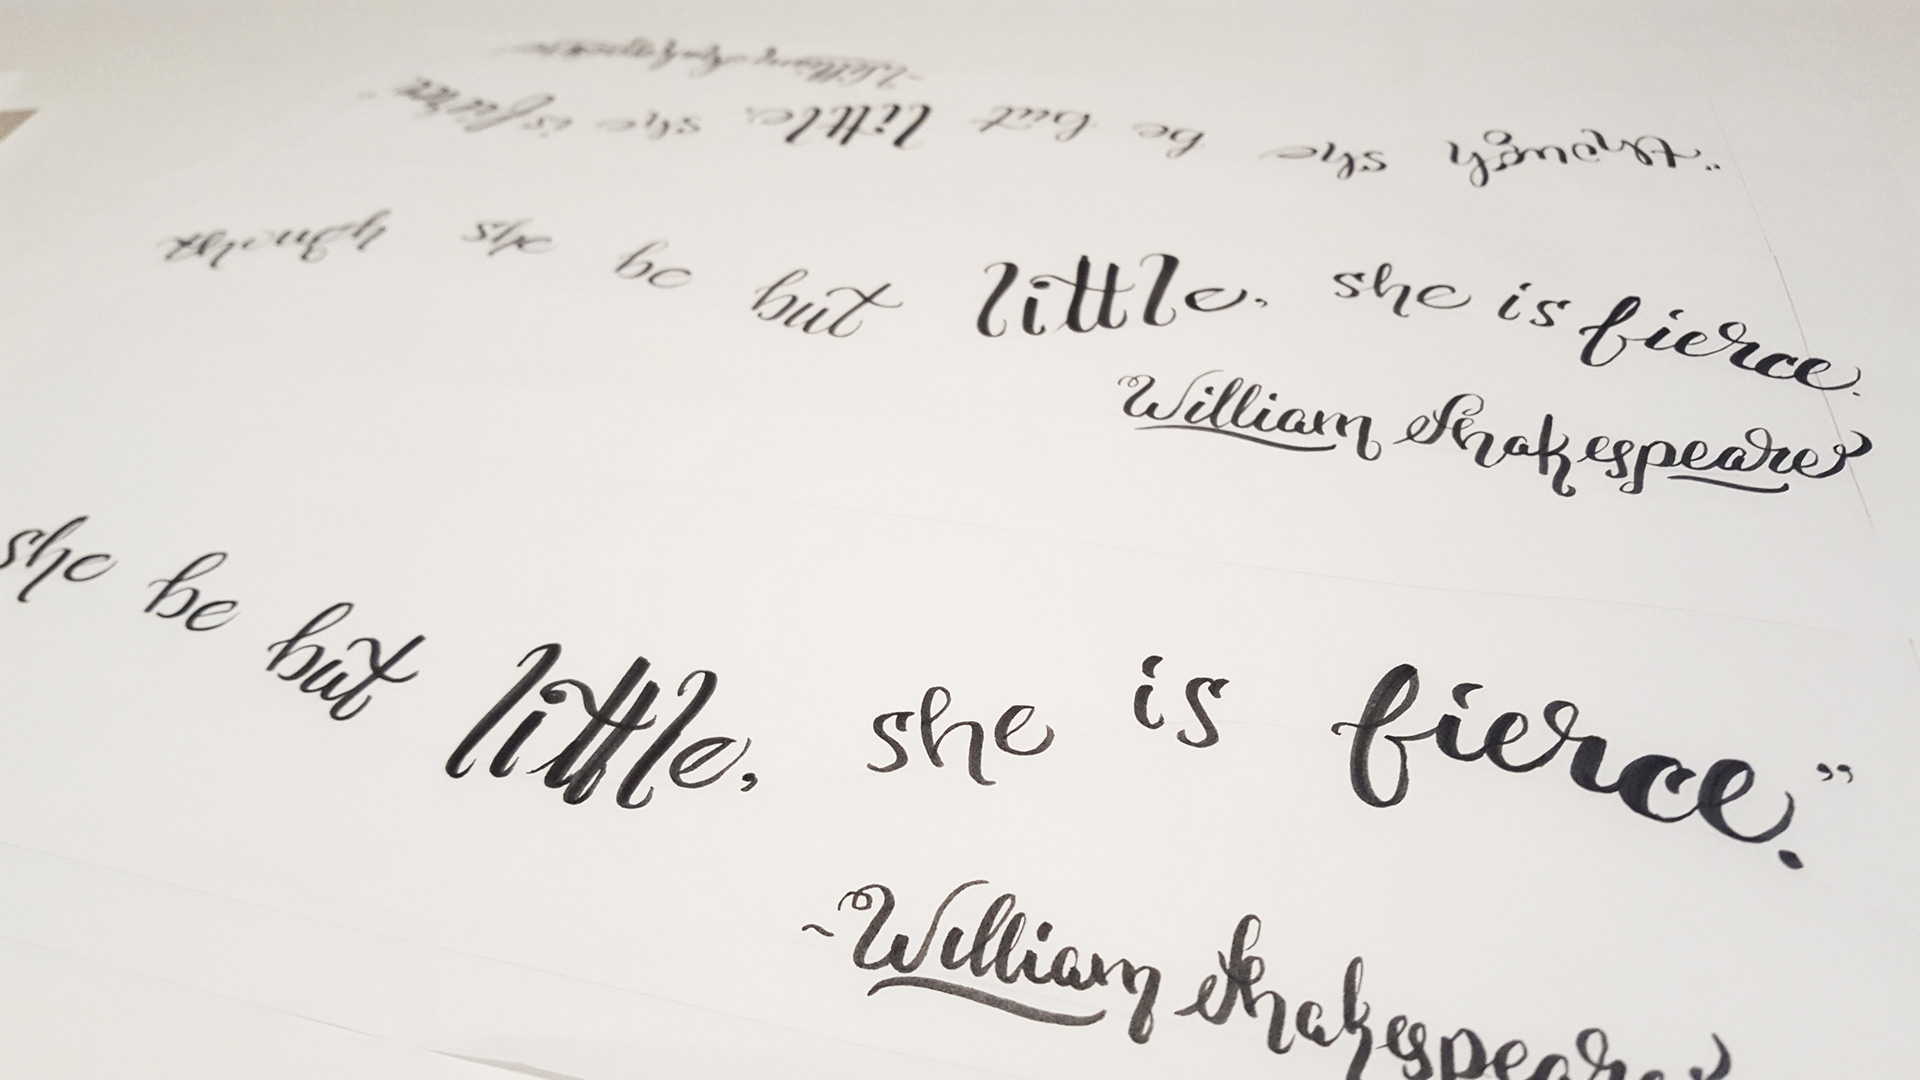 ~William Shakespeare
"though she be but little, she is fierce
though she be but little, she is fierce.
William Shakespeare
she be but little, she is fierce.”
~William Shakespeare